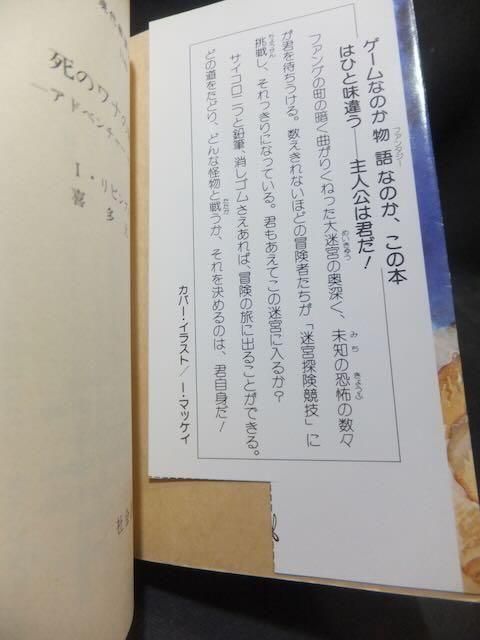 ゲームなのか物語なのか、この本
ファンタジー
はひと味違う――主人公は君だ！
ファングの町の暗く曲がりくねった大迷宮の奥深く、未知の恐怖の数々
めいきゅう
みち
きょうふ
が君を待ちうける。数えきれないほどの冒険者たちが「迷宮探険競技」に
挑戦し、それっきりになっている。君もあえてこの迷宮に入るか？
ちょうせん
サイコロ二つと鉛筆、消しゴムさえあれば、冒険の旅に出ることができる。
どの道をたどり、どんな怪物と戦うか、それを決めるのは、君自身だ！
たたか
カバー・イラスト／I・マッケイ
死のワナの
―アドベンチャー
I・リビング
喜多
社会